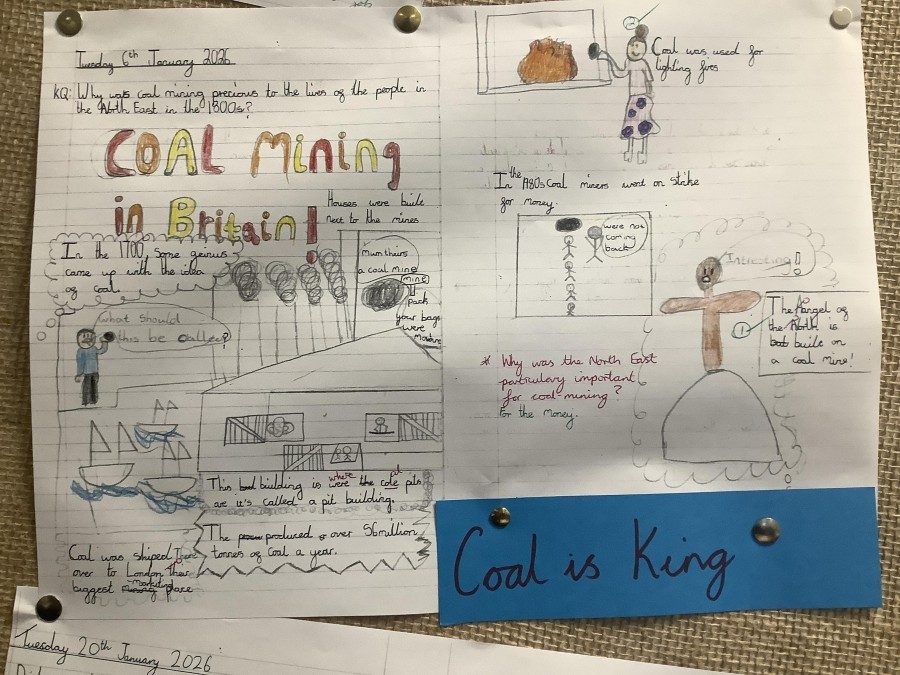 Tuesday 6th January 2026
KQ: Why was coal mining precious to the lives of the people in
the North East in the 1800s?
COAL Mining
in Britain!
Houses were built
next to the mines
In the 1700 some genius
came up with the idea
of coal.
What should
this be called?
Mum theirs
a coal mine
mine
pack
your bags
were
This building is where the coal pits
are it's called a pit building.
The produced over 56 million
tonnes of coal a year.
Coal was shiped
over to London their
biggest marketing place
Coal was used for
lighting fires
In the 1980s Coal miners went on strike
for money.
were not
coming
back
Intresting!
The Angel of
the North is
built on
a coal mine!
* Why was the North East
particulary important
for coal mining?
For the money.
Coal is King
Tuesday 20th January 2026